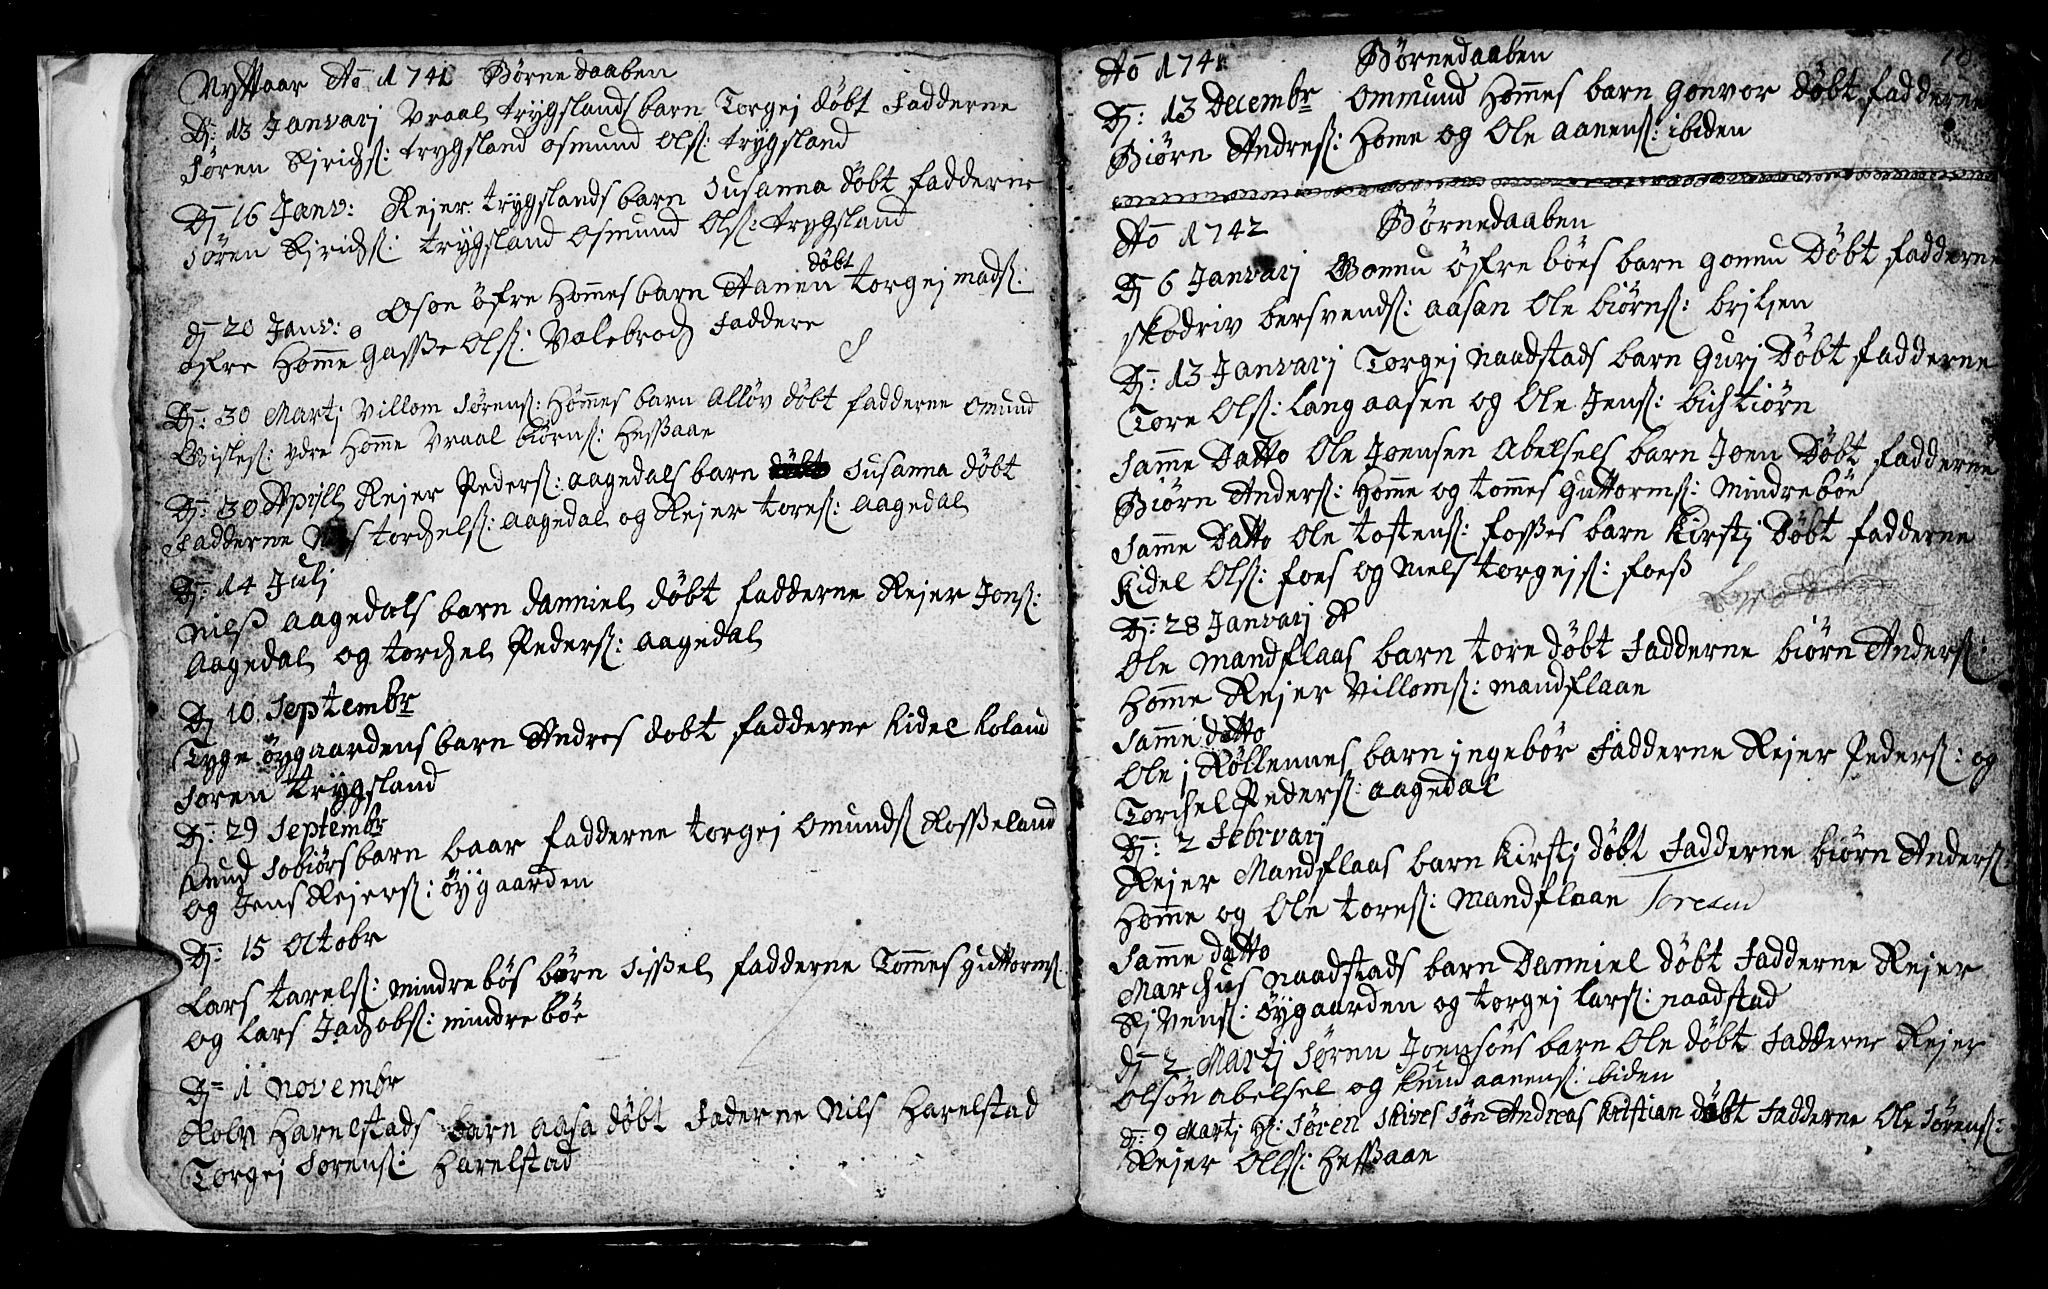 NyttAar Ao 1741 Børnedaaben
Dj: 13 Janvarj Vraal trygslands barn Torgej døbt Fadderne
Søren Kjrichs: trygsland osmund Ols: trygsland
Dj 16 Janv: Rejer trygslands barn Susanna døbt Fadderne
Søren Kjrichs: trygsland osmund Ols: trygsland
Dj 20 Janv: Oson øfre Hommes barn Aanen døbt torgej mads:
øfre Homme gasse Ols: Valebrock Faddere
Dj: 30 Martj Villom Sørens: Hommes barn Alløv døbt fadderne omund
Gisles: ydre Homme Vraal biørns: Hessaae
Dj: 30 Aprill Rejer Peders: aagedals barn Susanna døbt
Fadderne torchels: aagedal og Rejer tores: aagedal
Dj: 14 Julj
Nilss aagedals barn danniel døbt fadderne Rejer Jons:
aagedal og torchel Peders: aagedal
Dj 10 Septembr
Tyge øygaardens barn Andres døbt fadderne kidel koland
Søren trygsland
Dj: 29 Septembr
knud Sobiørs barn baar fadderne torgej omunds Rosseland
og Jens Rejers: øygaarden
Dj: 15 Oktobr
Lars tarels: mindrebøs børn Sissel fadderne Tommes guttorms:
og Lars Jachobs: mindrebøe
Dj= 1 novembr
Roln Harelstads barn aasa døbt Faderne Nils Harelstad
Torgej Sørens: Harelstad
10
Ao 1741 Børnedaaben
Dj: 13 Decembr Ommund Hommes barn gonvor døbt fadderne
Biørn Andres: Home og Ole aanens: ibiden
Ao 1742 Børnedaaben
Dj 6 Janvarj Gonnu øfrebøes barn gonnu Døbt fadderne
skodriv bersvends: aasan Ole biørns: briljen
Dj: 13 Janvarj Torgej naadstads barn Gurj Døbt fadderne
Tore Ols: langaasen og Ole Jens: bichtiørn
Samme Datto Ole Joensen Abelsels barn Joen Døbt fadderne
Biørn Anders: Homme og tommes guttorms: Mindrebøe
Samme Datto Ole tostens: fosses barn Kirstj Døbt fadderne
Kidel Ols: foes og Niels torgejs: foess
Dj: 28 Janvarj
Ole Mandflaas barn tore døbt Fadderne biørn Anders:
Homme Rejer Villoms: mandflaan
Samme datto
Ole j Røllennes barn jngebør Fadderne Rejer Peders: og
Torchel Peders: aagedal
Dj: 2 Februarj
Rejer Mandflaas barn Kirstj døbt Fadderne biørn Anders:
Homme og Ole tores: Mandflaan Toresen
Samme datto
Marchus naadstads barn Danniel døbt Fadderne Rejer
Ejvens: øygaarden og torgej lars: naadstad
Dj 2 Martj Søren Joensøns barn Ole døbt Fadderne Rejer
olsøn abelsel og knud aanens: ibiden
Dj: 9 Martj Hr: Søren Skives Søn Andreas Kristian døbt Fadderne Ole Sørens:
Rejer Olls: Hessaae